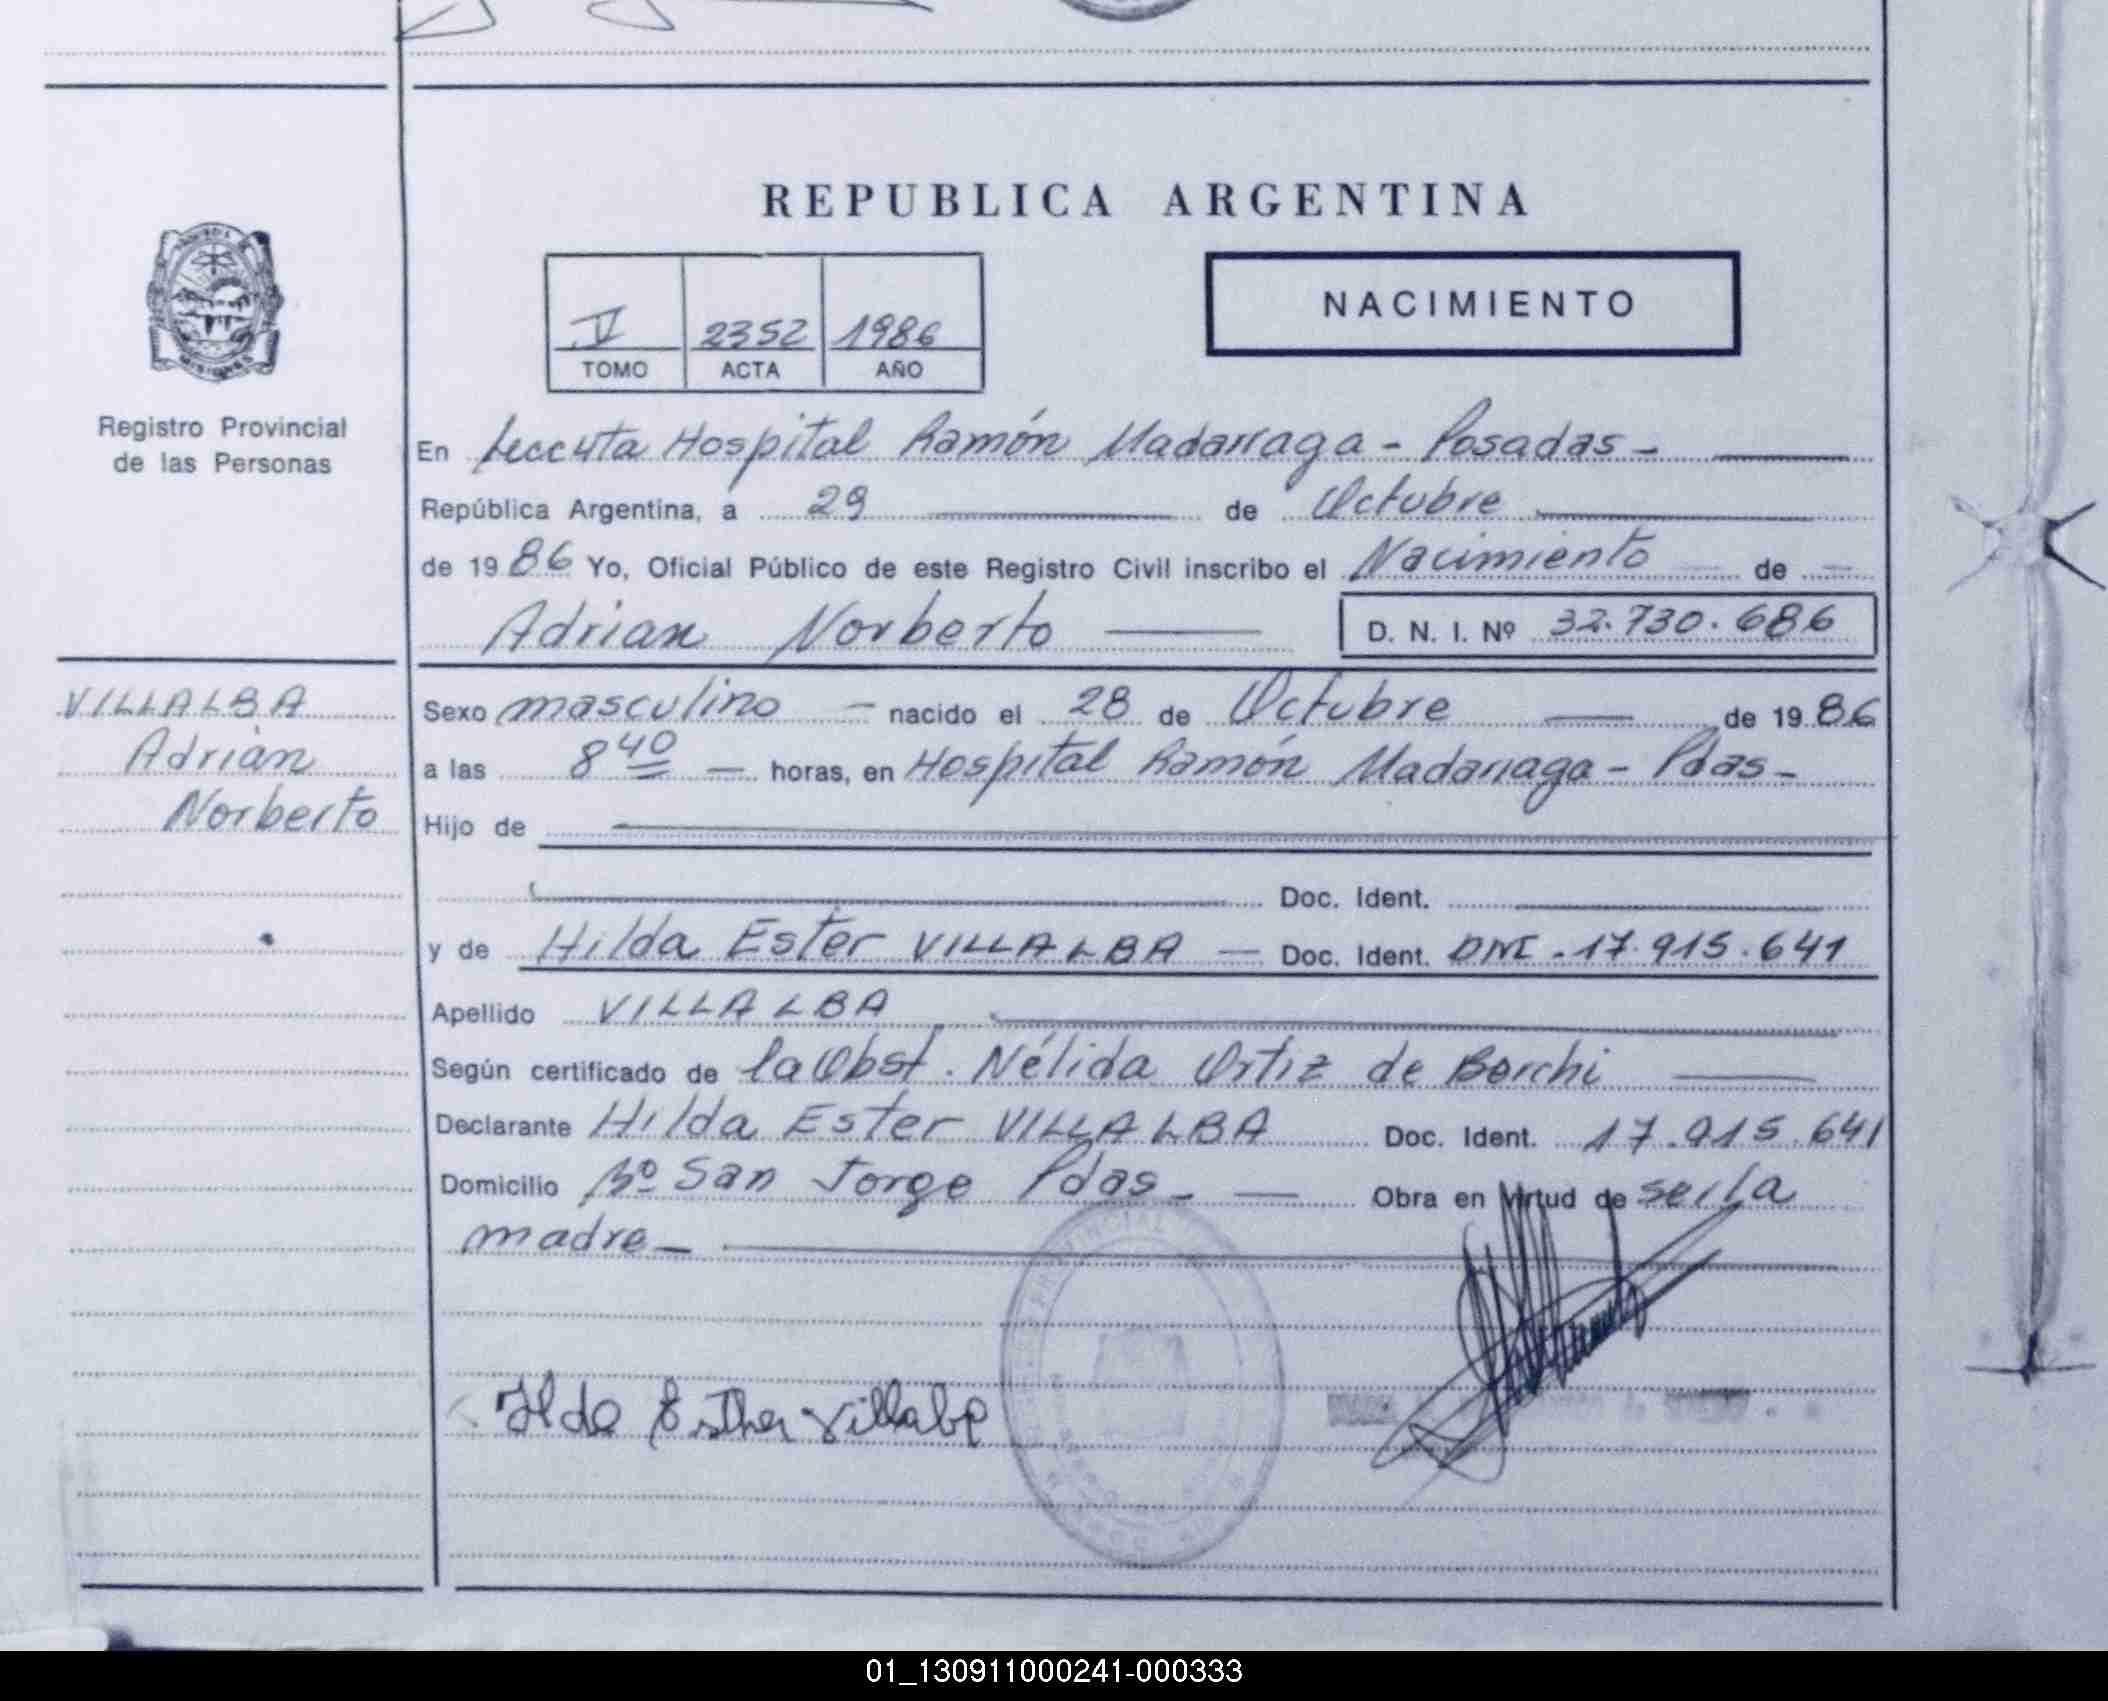 REPUBLICA ARGENTINA
V 2352 1986
TOMO ACTA AÑO
NACIMIENTO
Registro Provincial
de las Personas
En Hospital Ramón Madarraga - Posadas -
República Argentina, a 29 de Octubre
de 1986 Yo, Oficial Público de este Registro Civil inscribo el Nacimiento de
Adrian Norberto D. N. I. Nº 32.730.686
VILLALBA
Adrián
Norberto
Sexo masculino nacido el 28 de Octubre de 1986
a las 8 40 horas, en Hospital Ramón Madariaga - Pdas -
Hijo de
Doc. Ident.
y de Hilda Ester VILLALBA Doc. Ident. DNI - 17.915.641
Apellido VILLALBA
Según certificado de la Obst. Nélida Ortiz de Borchi
Declarante Hilda Ester VILLALBA Doc. Ident. 17.915.641
Domicilio Bº San Jorge Pdas - Obra en virtud de ser la
madre -
PROVINCIAL
Ilda Esther Villalba
01_130911000241-000333